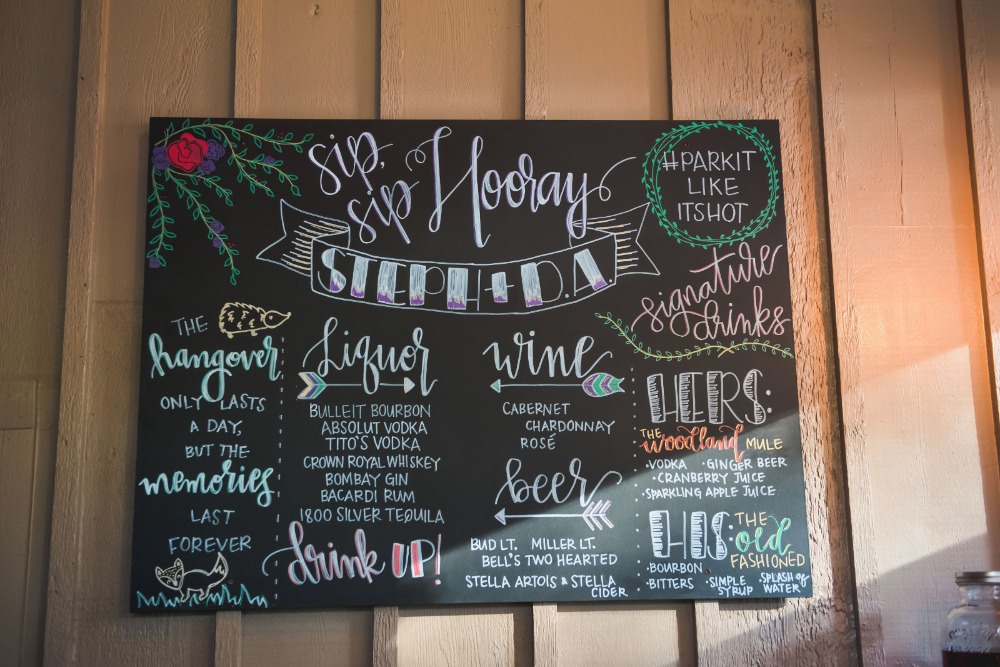 sip,
sip Hooray
STEPH + D.A.
#PARKIT
LIKE
ITSHOT
THE
hangover
ONLY LASTS
A DAY,
BUT THE
memories
LAST
FOREVER
Liquor
BULLEIT BOURBON
ABSOLUT VODKA
TITO'S VODKA
CROWN ROYAL WHISKEY
BOMBAY GIN
BACARDI RUM
1800 SILVER TEQUILA
drink UP!
wine
CABERNET
CHARDONNAY
ROSÉ
beer
BUD LT. MILLER LT.
BELL'S TWO HEARTED
STELLA ARTOIS & STELLA
CIDER
signature
drinks
HERS:
THE woodland MULE
·VODKA ·GINGER BEER
·CRANBERRY JUICE
·SPARKLING APPLE JUICE
HIS: THE
old
FASHIONED
·BOURBON
·BITTERS ·SIMPLE SYRUP ·SPLASH of WATER